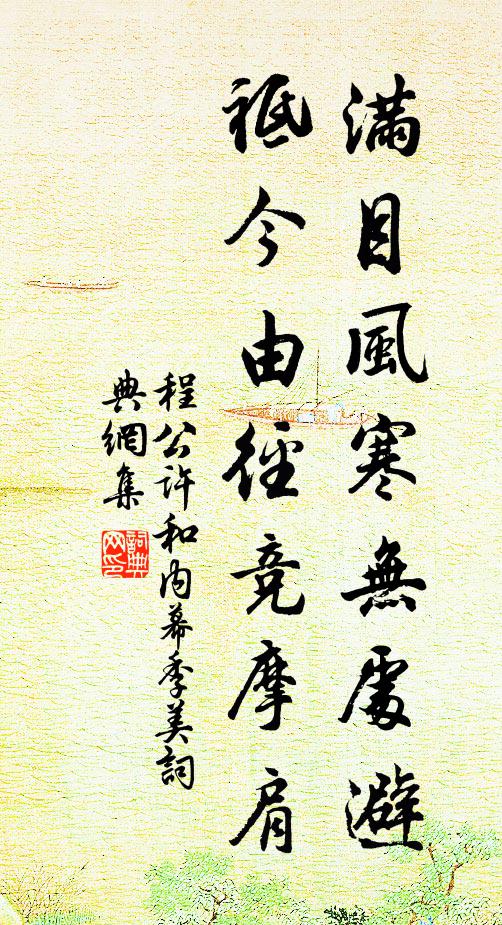 滿目風寒無處避
祇今由徑競摩肩
程公許和內幕季美詞
典網集
詞典
网印